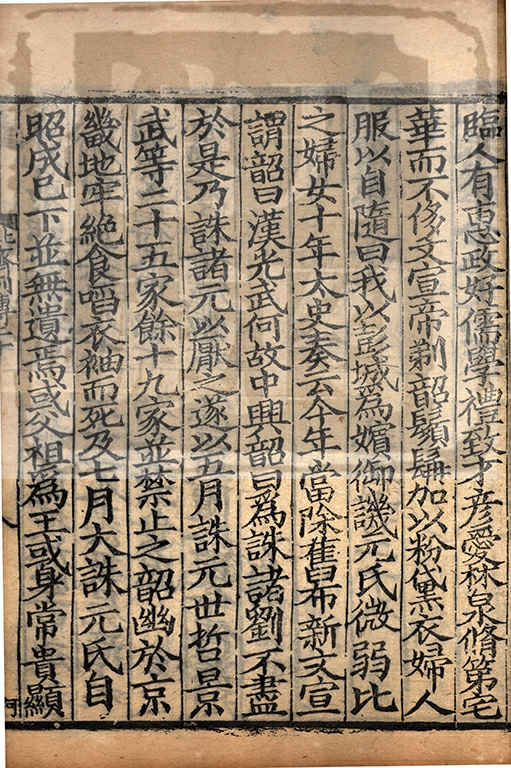 臨人有惠政好儒學禮致才彦愛林泉脩第宅
華而不侈文宣帝剃韶鬚髯加以粉黛衣婦人
服以自隨曰我以彭城爲嬪御譏元氏微弱比
之婦女十年太史奏云今年當除舊布新文宣
謂韶曰漢光武何故中興韶曰爲誅諸劉不盡
於是乃誅諸元以厭之遂以五月誅元世哲景
武等二十五家餘十九家並禁止之韶幽於京
畿地牢絶食㗖衣袖而死及七月大誅元氏自
昭成已下並無遺焉或父祖爲王或身常貴顯